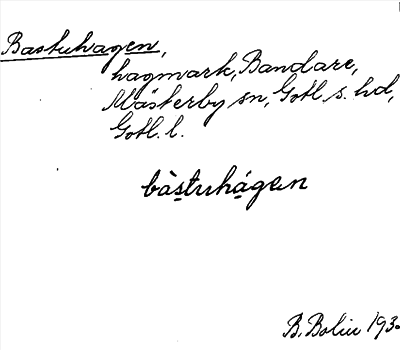 Bastuhagen,
hagmark, Bandare,
Mästerby sn, Gotl. s. hd,
Gotl. l.
bàstuhágen
B. Bolin 193